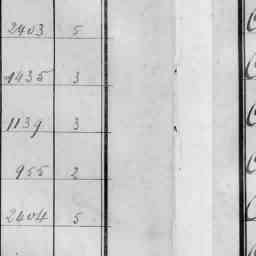 2403 5
1435 3
1139 3
955 2
2404 5